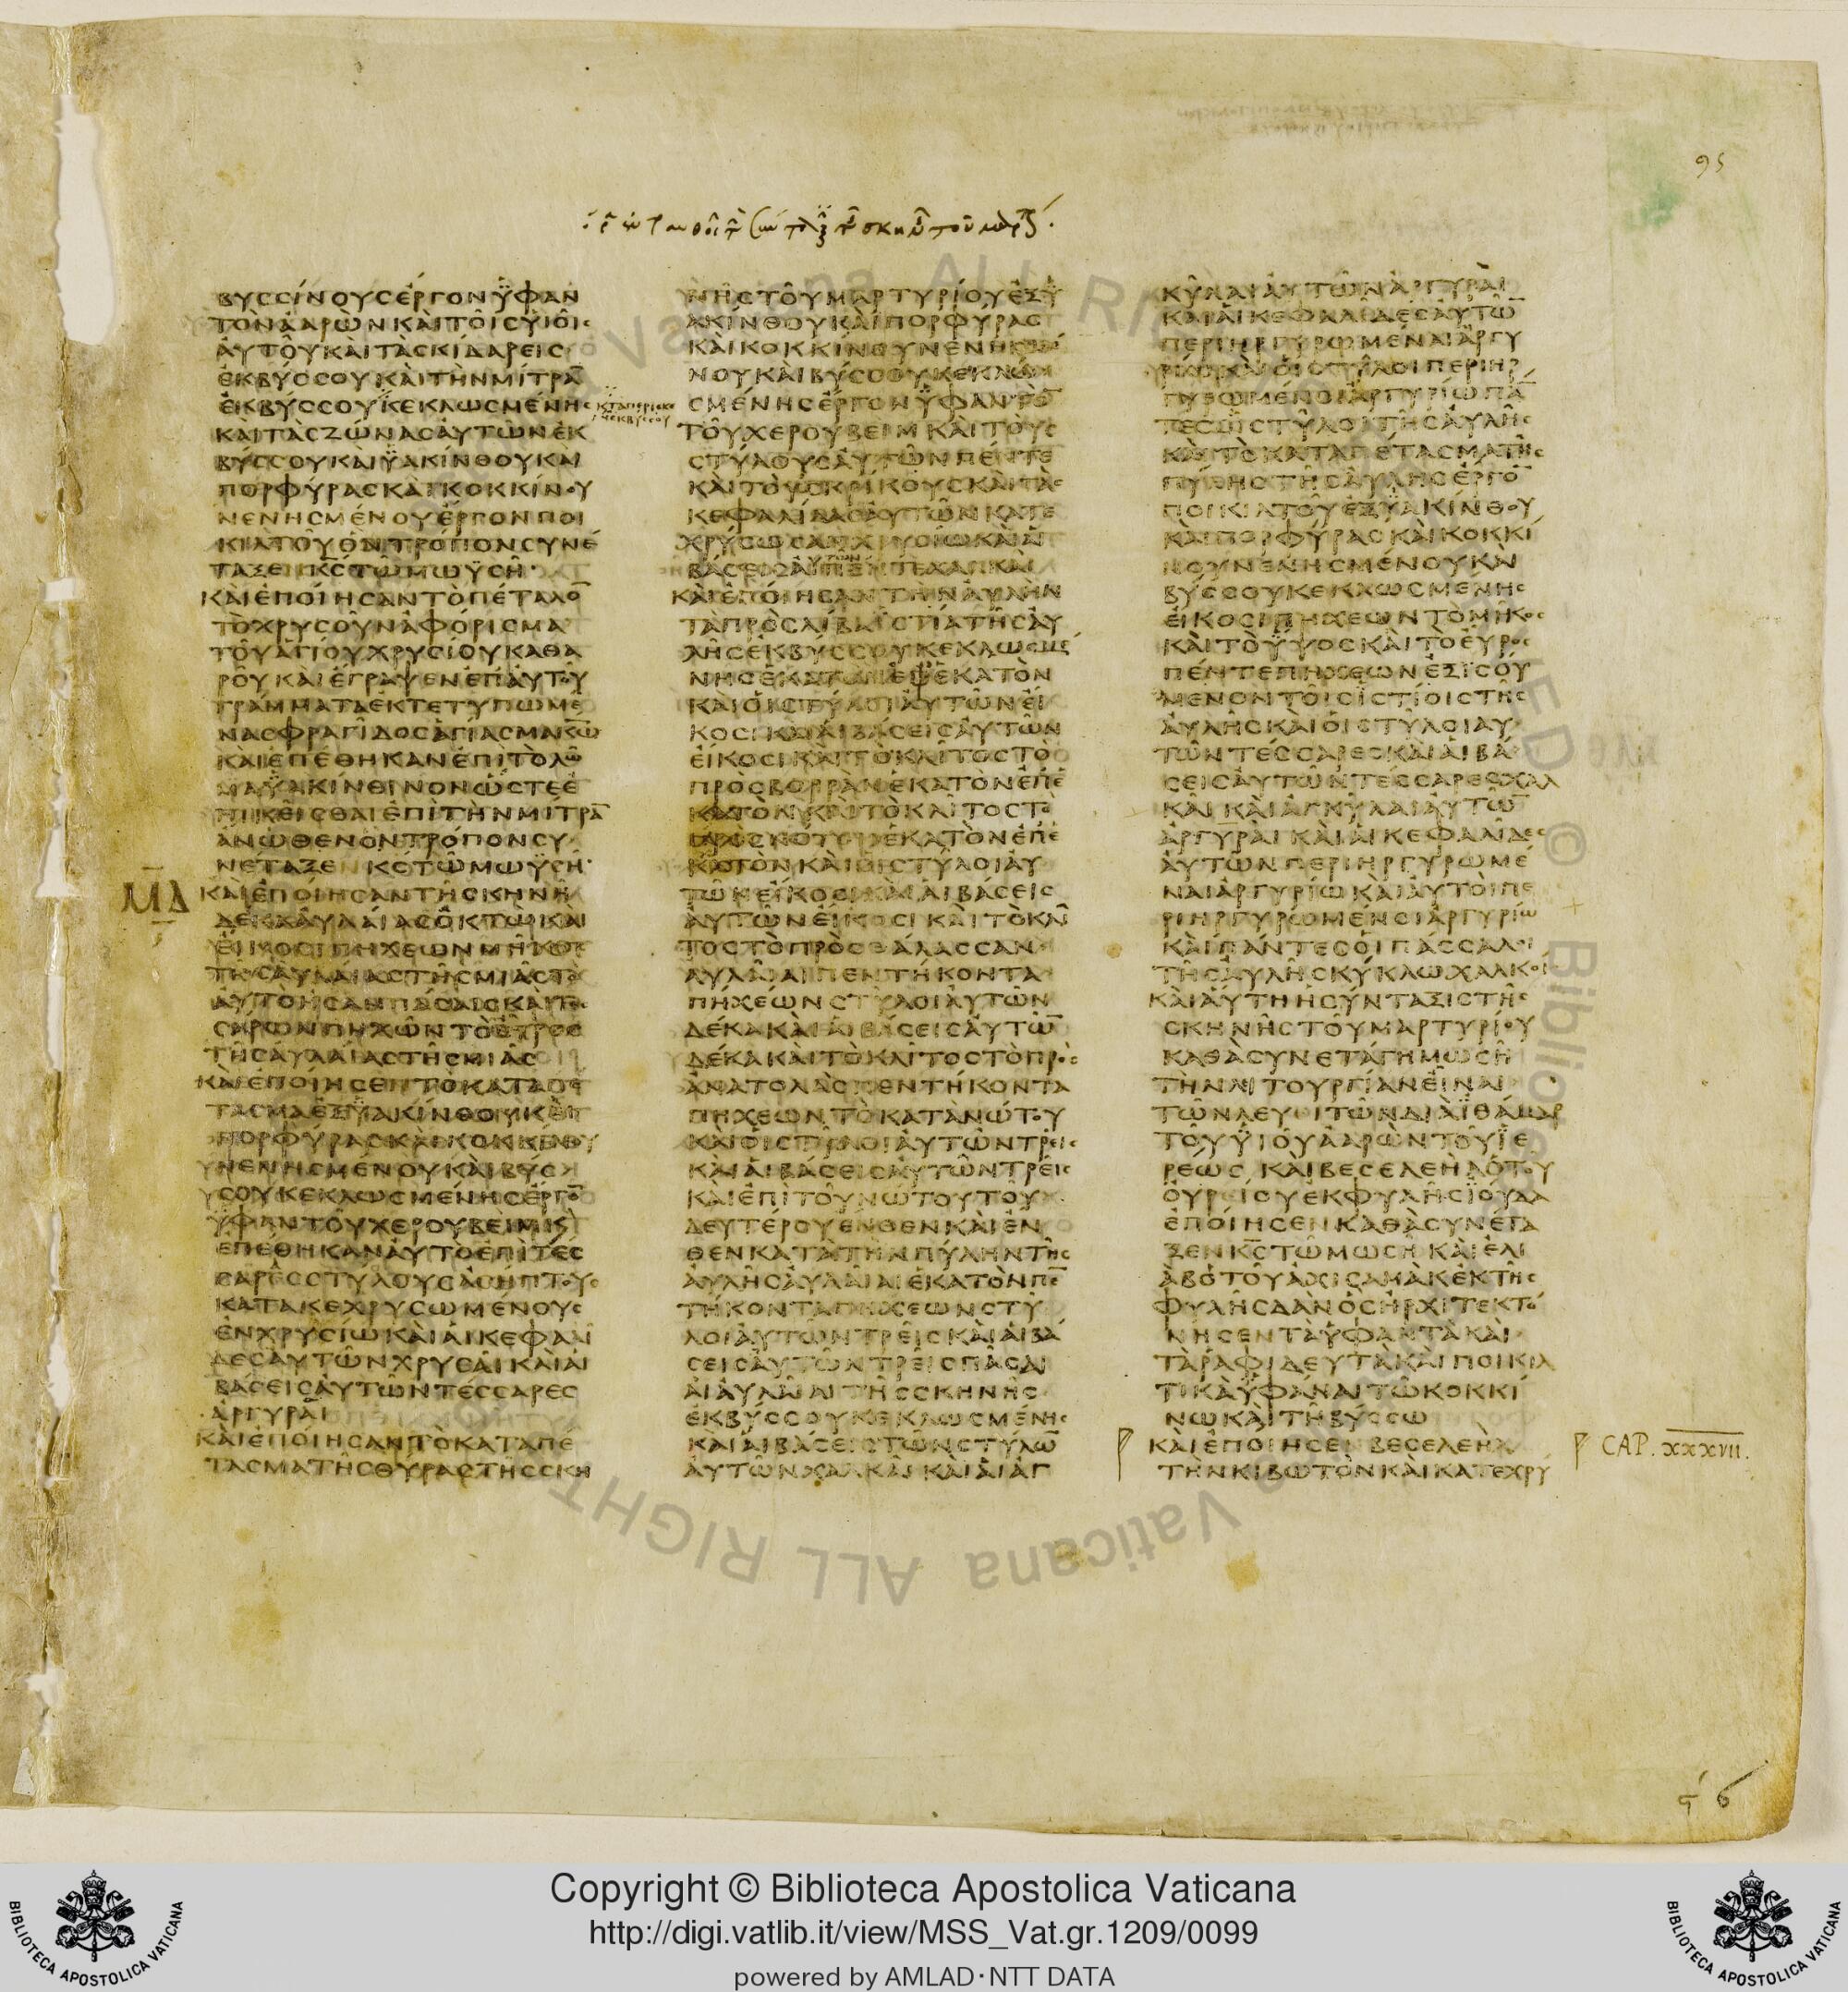 95
ΒΥϹϹΙΝΟΥϹΕΡΓΟΝΥΦΑΝ
ΤΟΝΑΑΡΩΝΚΑΙΤΟΙϹΥΙΟΙϹ
ΑΥΤΟΥΚΑΙΤΑϹΚΙΔΑΡΕΙϹ
ΕΚΒΥϹϹΟΥΚΑΙΤΗΝΜΙΤΡΑ̅
ΕΚΒΥϹϹΟΥΚΕΚΛΩϹΜΕΝΗϹ
ΚΑΙΤΑϹΖΩΝΑϹΑΥΤΩΝΕΚ
ΒΥϹϹΟΥΚΑΙΥΑΚΙΝΘΟΥΚΑΙ
ΠΟΡΦΥΡΑϹΚΑΙΚΟΚΚΙΝΟΥ
ΝΕΝΗϹΜΕΝΟΥΕΡΓΟΝΠΟΙ
ΚΙΛΤΟΥΟΝΤΡΟΠΟΝϹΥΝΕ
ΤΑΞΕΝΚ̅Ϲ̅ΤΩΜΩΥϹΗ
ΚΑΙΕΠΟΙΗϹΑΝΤΟΠΕΤΑΛΟ̅
ΤΟΧΡΥϹΟΥΝΑΦΟΡΙϹΜΑ
ΤΟΥΑΓΙΟΥΧΡΥϹΙΟΥΚΑΘΑ
ΡΟΥΚΑΙΕΓΡΑΨΕΝΕΠΑΥΤΟΥ
ΓΡΑΜΜΑΤΑΕΚΤΕΤΥΠΩΜΕ
ΝΑϹΦΡΑΓΙΔΟϹΑΓΙΑϹΜΑΚ̅Ω̅
ΚΑΙΕΠΕΘΗΚΑΝΕΠΙΤΟΛΩ
ΜΑΥΑΚΙΝΘΙΝΟΝΩϹΤΕΕ
ΠΙΚΕΙϹΘΑΙΕΠΙΤΗΝΜΙΤΡΑ̅
ΑΝΩΘΕΝΟΝΤΡΟΠΟΝϹΥ
ΝΕΤΑΞΕΝΚ̅Ϲ̅ΤΩΜΩΥϹΗ
ΜΔ
ΚΑΙΕΠΟΙΗϹΑΝΤΗϹΚΗΝΗ
ΔΕΚΑΑΥΛΑΙΑϹΟΚΤΩΚΑΙ
ΕΙΚΟϹΙΠΗΧΕΩΝΜΗΚΟϹ
ΤΗϹΑΥΛΑΙΑϹΤΗϹΜΙΑϹΤΟ
ΑΥΤΟΗϹΑΝΠΑϹΑΙϹΚΑΙΤΕϹ
ϹΑΡΩΝΠΗΧΩΝΤΟΕΥΡΟϹ
ΤΗϹΑΥΛΑΙΑϹΤΗϹΜΙΑϹ
ΚΑΙΕΠΟΙΗϹΕΝΤΟΚΑΤΑΠΕ
ΤΑϹΜΑΕΞΥΑΚΙΝΘΟΥΚΑΙ
ΠΟΡΦΥΡΑϹΚΑΙΚΟΚΚΙΝΟΥ
ΝΕΝΗϹΜΕΝΟΥΚΑΙΒΥϹ
ϹΟΥΚΕΚΛΩϹΜΕΝΗϹΕΡΓΟ̅
ΥΦΑΝΤΟΥΧΕΡΟΥΒΕΙΜΚΑΙ
ΕΠΕΘΗΚΑΝΑΥΤΟΕΠΙΤΕϹ
ϹΑΡΕϹϹΤΥΛΟΥϹΑϹΗΠΤΟΥϹ
ΚΑΤΑΚΕΧΡΥϹΩΜΕΝΟΥϹ
ΕΝΧΡΥϹΙΩΚΑΙΑΙΚΕΦΑΛΙ
ΔΕϹΑΥΤΩΝΧΡΥϹΑΙΚΑΙΑΙ
ΒΑϹΕΙϹΑΥΤΩΝΤΕϹϹΑΡΕϹ
ΑΡΓΥΡΑΙ
ΚΑΙΕΠΟΙΗϹΑΝΤΟΚΑΤΑΠΕ
ΤΑϹΜΑΤΗϹΘΥΡΑϹΤΗϹϹΚΗ
ΝΗϹΤΟΥΜΑΡΤΥΡΙΟΥΕΞΥ
ΑΚΙΝΘΟΥΚΑΙΠΟΡΦΥΡΑϹ
ΚΑΙΚΟΚΚΙΝΟΥΝΕΝΗϹΜΕ
ΝΟΥΚΑΙΒΥϹϹΟΥΚΕΚΛΩ
ϹΜΕΝΗϹΕΡΓΟΝΥΦΑΝΤΟ
ΤΟΥΧΕΡΟΥΒΕΙΜΚΑΙΤΟΥϹ
ϹΤΥΛΟΥϹΑΥΤΩΝΠΕΝΤΕ
ΚΑΙΤΟΥϹΚΡΙΚΟΥϹΚΑΙΤΑϹ
ΚΕΦΑΛΙΔΑϹΑΥΤΩΝΚΑΤΕ
ΧΡΥϹΩϹΑΝΧΡΥϹΙΩΚΑΙΑΙ
ΒΑϹΕΙϹΑΥΤΩΝΠΕΝΤΕΧΑΛΚΑΙ
ΚΑΙΕΠΟΙΗϹΑΝΤΗΝΑΥΛΗΝ
ΤΑΠΡΟϹΛΙΒΑΙϹΤΙΑΤΗϹΑΥ
ΛΗϹΕΚΒΥϹϹΟΥΚΕΚΛΩϹΜΕ
ΝΗϹΕΚΑΤΟΝΕΦΕΚΑΤΟΝ
ΚΑΙΟΙϹΤΥΛΟΙΑΥΤΩΝΕΙ
ΚΟϹΙΚΑΙΑΙΒΑϹΕΙϹΑΥΤΩΝ
ΕΙΚΟϹΙΚΑΙΤΟΚΛΙΤΟϹΤΟ
ΠΡΟϹΒΟΡΡΑΝΕΚΑΤΟΝΕΠΕ
ΚΑΤΟΝΚΑΙΤΟΚΛΙΤΟϹΤΟ
ΠΡΟϹΝΟΤΟΝΕΚΑΤΟΝΕΠΕ
ΚΑΤΟΝΚΑΙΟΙϹΤΥΛΟΙΑΥ
ΤΩΝΕΙΚΟϹΙΚΑΙΑΙΒΑϹΕΙϹ
ΑΥΤΩΝΕΙΚΟϹΙΚΑΙΤΟΚΛΙ
ΤΟϹΤΟΠΡΟϹΘΑΛΑϹϹΑΝ
ΑΥΛΑΙΑΙΠΕΝΤΗΚΟΝΤΑ
ΠΗΧΕΩΝϹΤΥΛΟΙΑΥΤΩΝ
ΔΕΚΑΚΑΙΑΙΒΑϹΕΙϹΑΥΤΩ̅
ΔΕΚΑΚΑΙΤΟΚΛΙΤΟϹΤΟΠΡΟϹ
ΑΝΑΤΟΛΑϹΠΕΝΤΗΚΟΝΤΑ
ΠΗΧΕΩΝΤΟΚΑΤΑΝΩΤΟΥ
ΚΑΙΟΙϹΤΥΛΟΙΑΥΤΩΝΤΡΕΙϹ
ΚΑΙΑΙΒΑϹΕΙϹΑΥΤΩΝΤΡΕΙϹ
ΚΑΙΕΠΙΤΟΥΝΩΤΟΥΤΟΥ
ΔΕΥΤΕΡΟΥΕΝΘΕΝΚΑΙΕΝ
ΘΕΝΚΑΤΑΤΗΝΠΥΛΗΝΤΗϹ
ΑΥΛΗϹΑΥΛΑΙΑΙΕΚΑΤΟΝΠΕ̅
ΤΗΚΟΝΤΑΠΗΧΕΩΝϹΤΥ
ΛΟΙΑΥΤΩΝΤΡΕΙϹΚΑΙΑΙΒΑ
ϹΕΙϹΑΥΤΩΝΤΡΕΙϹΠΑϹΑΙ
ΑΙΑΥΛΑΙΑΙΤΗϹϹΚΗΝΗϹ
ΕΚΒΥϹϹΟΥΚΕΚΛΩϹΜΕΝΗϹ
ΚΑΙΑΙΒΑϹΕΙϹΤΩΝϹΤΥΛΩ̅
ΑΥΤΩΝΧΑΛΚΑΙΚΑΙΑΙΑΓ
ΚΥΛΑΙΑΥΤΩΝΑΡΓΥΡΑΙ
ΚΑΙΑΙΚΕΦΑΛΙΔΕϹΑΥΤΩ̅
ΠΕΡΙΗΡΓΥΡΩΜΕΝΑΙΑΡΓΥ
ΡΙΩΚΑΙΟΙϹΤΥΛΟΙΠΕΡΙΗΡ
ΓΥΡΩΜΕΝΟΙΑΡΓΥΡΙΩΠΑ̅
ΤΕϹΟΙϹΤΥΛΟΙΤΗϹΑΥΛΗϹ
ΚΑΙΤΟΚΑΤΑΠΕΤΑϹΜΑΤΗϹ
ΠΥΛΗϹΤΗϹΑΥΛΗϹΕΡΓΟ̅
ΠΟΙΚΙΛΤΟΥΕΞΥΑΚΙΝΘΟΥ
ΚΑΙΠΟΡΦΥΡΑϹΚΑΙΚΟΚΚΙ
ΝΟΥΝΕΝΗϹΜΕΝΟΥΚΑΙ
ΒΥϹϹΟΥΚΕΚΛΩϹΜΕΝΗϹ
ΕΙΚΟϹΙΠΗΧΕΩΝΤΟΜΗΚΟϹ
ΚΑΙΤΟΥΨΟϹΚΑΙΤΟΕΥΡΟϹ
ΠΕΝΤΕΠΗΧΕΩΝΕΞΙϹΟΥ
ΜΕΝΟΝΤΟΙϹΙϹΤΙΟΙϹΤΗϹ
ΑΥΛΗϹΚΑΙΟΙϹΤΥΛΟΙΑΥ
ΤΩΝΤΕϹϹΑΡΕϹΚΑΙΑΙΒΑ
ϹΕΙϹΑΥΤΩΝΤΕϹϹΑΡΕϹΧΑΛ
ΚΑΙΚΑΙΑΙΑΓΚΥΛΑΙΑΥΤΩ̅
ΑΡΓΥΡΑΙΚΑΙΑΙΚΕΦΑΛΙΔΕϹ
ΑΥΤΩΝΠΕΡΙΗΡΓΥΡΩΜΕ
ΝΑΙΑΡΓΥΡΙΩΚΑΙΑΥΤΟΙΠΕ
ΡΙΗΡΓΥΡΩΜΕΝΟΙΑΡΓΥΡΙΩ
ΚΑΙΠΑΝΤΕϹΟΙΠΑϹϹΑΛΟΙ
ΤΗϹΑΥΛΗϹΚΥΚΛΩΧΑΛΚΟΙ
ΚΑΙΑΥΤΗΗϹΥΝΤΑΞΙϹΤΗϹ
ϹΚΗΝΗϹΤΟΥΜΑΡΤΥΡΙΟΥ
ΚΑΘΑϹΥΝΕΤΑΓΗΜΩϹΗ
ΤΗΝΛΙΤΟΥΡΓΙΑΝΕΙΝΑΙ
ΤΩΝΛΕΥΕΙΤΩΝΔΙΑΙΘΑΜΑΡ
ΤΟΥΥΙΟΥΑΑΡΩΝΤΟΥΙΕ
ΡΕΩϹΚΑΙΒΕϹΕΛΕΗΛΟΤΟΥ
ΟΥΡΕΙΟΥΕΚΦΥΛΗϹΙΟΥΔΑ
ΕΠΟΙΗϹΕΝΚΑΘΑϹΥΝΕΤΑ
ΞΕΝΚ̅Ϲ̅ΤΩΜΩϹΗΚΑΙΕΛΙ
ΑΒΟΤΟΥΑΧΙϹΑΜΑΚΕΚΤΗϹ
ΦΥΛΗϹΔΑΝΟϹΗΡΧΙΤΕΚΤΟ
ΝΗϹΕΝΤΑΥΦΑΝΤΑΚΑΙ
ΤΑΡΑΦΙΔΕΥΤΑΚΑΙΠΟΙΚΙΛ
ΤΙΚΑΥΦΑΝΑΙΤΩΚΟΚΚΙ
ΝΩΚΑΙΤΗΒΥϹϹΩ
ΚΑΙΕΠΟΙΗϹΕΝΒΕϹΕΛΕΗΛ
ΤΗΝΚΙΒΩΤΟΝΚΑΙΚΑΤΕΧΡΥ
CAP. xxxvii.
Copyright © Biblioteca Apostolica Vaticana
http://digi.vatlib.it/view/MSS_Vat.gr.1209/0099
powered by AMLAD·NTT DATA
BIBLIOTECA APOSTOLICA VATICANA
BIBLIOTECA APOSTOLICA VATICANA